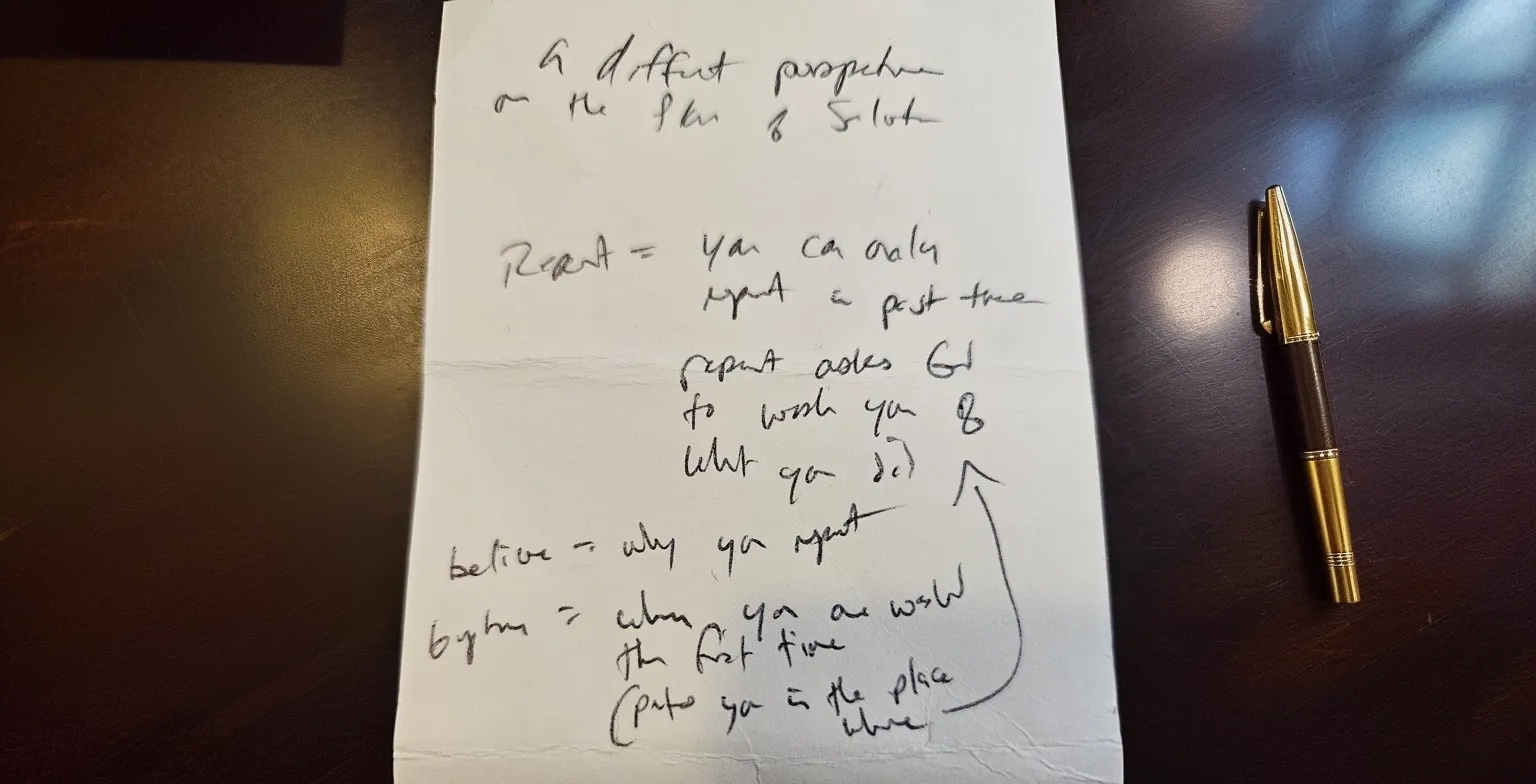 A different perspective
on the Plan of Salvation
Repent = you can only
repent in past tense
repent asks God
to wash you of
what you did
believe = why you repent
baptism = when you are washed
the first time
(puts you in the place
where